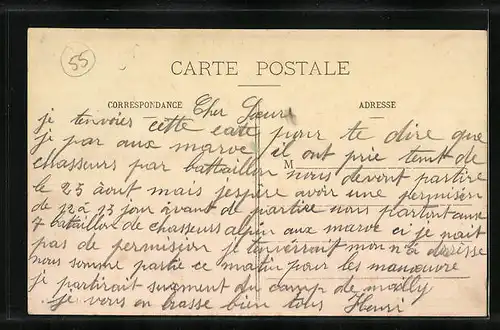 55
CARTE POSTALE
CORRESPONDANCE
ADRESSE
M
Cher Sœur
je tenvoies cette carte pour te dire que
je par aux maroc il ont prie tent de
chasseurs par battaillon nous devont partire
le 25 aout mais jespère avoir une permision
de 12 à 15 jour avant de partire nous partont aux
7 bataillon de chasseurs alpin aux maroc ci je nait
pas de permision je tenverrait mon adresse
nous somme partie ce matin pour les manœuvre
je partirait surement du camp de mailly
je vous en brasse bien tous Henri